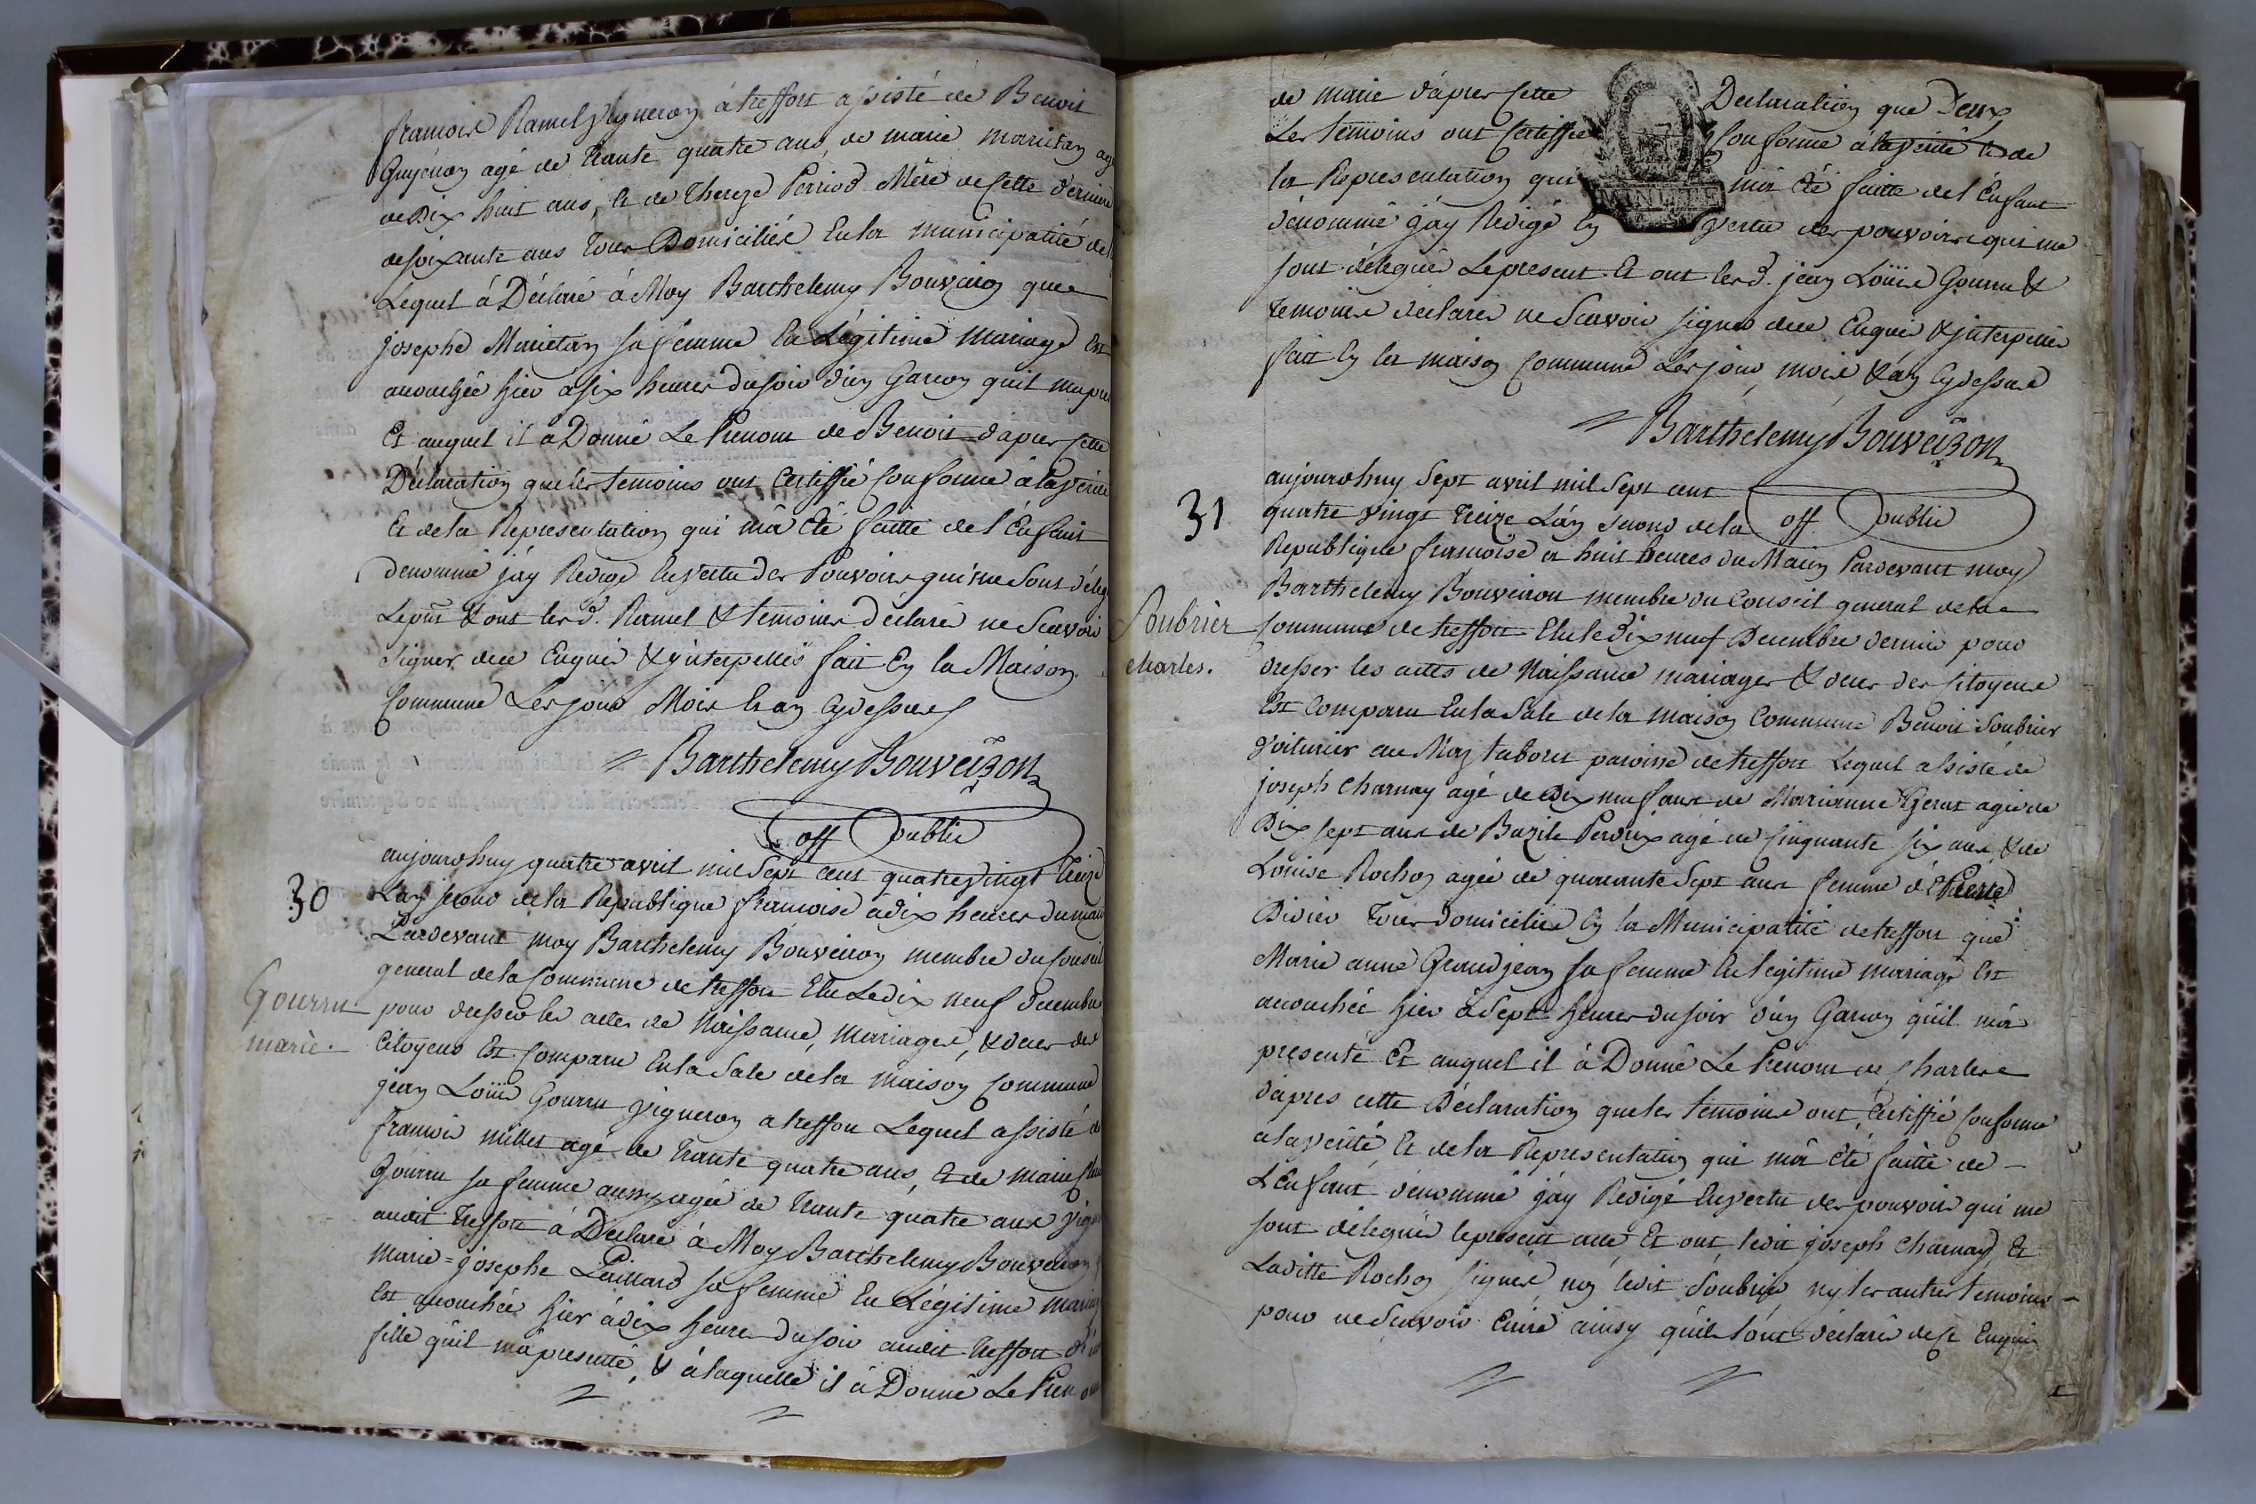 francois Ramel vigneron à treffort assisté de Benoit
Guyénon agé de trante quatre ans, de marie marietan
de Dix huit ans, et de thereze Perriod Mère de Cette derniere
de soixante ans tous Domiciliés En la municipalité de
Lequel à Déclaré à Moy Barthelemy Bouveiron que
josephe Marietan sa femme En Légitime mariage Est
accouchée hier a six heures du soir d'un Garcon quil ma
Et auquel il à Donné Le Prenom de Benoit d'apres Cette
Déclaration que les temoins ont Certiffié Conforme à la verité
Et de la Representation qui m'a été faitte de l'Enfant
denommé j'ay Redigé En vertu des Pouvoirs qui me sont
Le pnt & ont lesd. Ramel & temoins déclaré ne Scavoir
signer de ce Enquis & interpellés fait En la Maison
Commune Les jour Mois & an cy dessus
Barthelemy Bouveiron
off public
30
aujourdhuy quatre avril mil Sept cent quatrevingt treize
L'an second de la Republique francoise à dix heures du matin
Pardevant moy Barthelemy Bouveiron membre du Conseil
general de la Commune de treffort Elu Le dix neuf decembre
Gourru
marie.
pour dresser les actes de Naissance, Mariages, & deces des
Citoyens Est Comparu En la Sale de la maison Commune
jean Loüis Gourru vigneron a treffort Lequel assisté de
francois millet agé de trante quatre ans, et de marie
Gourru sa femme aussy agée de trante quatre ans
audit treffort à Déclaré à Moy Barthelemy Bouveiron
Marie=josephe Paillard sa femme En Légitime mariage
Est accouchée hier à dix heures du soir audit treffort
fille quil m'a presenté, & à laquelle il à Donné Le Prenom
de marie d'apres Cette Declaration que
Les temoins ont Certiffié Conforme à la verité & de
la Representation qui m'a été faitte de l'Enfant
dénommé j'ay Redigé En vertu des pouvoirs qui me
sont délegués Le present Et ont lesd. jean Loüis Gourru &
temoins déclarés ne Scavoir signer de ce Enquis & interpellés
fait En la maison Commune Les jour, mois & an Cy dessus
Barthelemy Bouveiron
off public
31
aujourdhuy Sept avril mil Sept cent
quatre vingt treize L'an second de la
Republique francoise a huit heures du Matin Pardevant moy
Barthelemy Bouveiron membre du Conseil general de la
Soubrier
charles.
Commune de treffort Elu le Dix neuf Decembre dernier pour
dresser les actes de Naissance mariages & deces des Citoyens
Est Comparu En la Sale de la maison Commune Benoit Soubrier
voiturier au Maz tabouret paroisse de treffort Lequel assisté de
joseph Charnay agé de Dix neuf ans de Marianne Gerat agée de
Dix sept ans de Bazile Perdrix agé de Cinquante six ans, & de
Louise Rochon agée de quarante Sept ans femme d'Pierre
Didier tous domiciliés En la Municipalité de treffort que
Marie anne Grandjean sa femme En legitime mariage Est
accouchée hier à Sept heures du soir d'un Garcon quil m'a
presenté Et auquel il à Donné Le Prenom de Charles
d'apres cette Déclaration que les temoins ont Certiffié Conforme
à la verité, Et de la Representation qui m'à été faitte de
L'Enfant denommé j'ay Redigé En vertu des pouvoirs qui me
sont délegués le present acte Et ont ledit joseph Charnay Et
Laditte Rochon signés non ledit Soubrier ny les autres temoins
pour ne Scavoir Ecrire ainsy qu'ils l'ont déclarés de ce Enquis